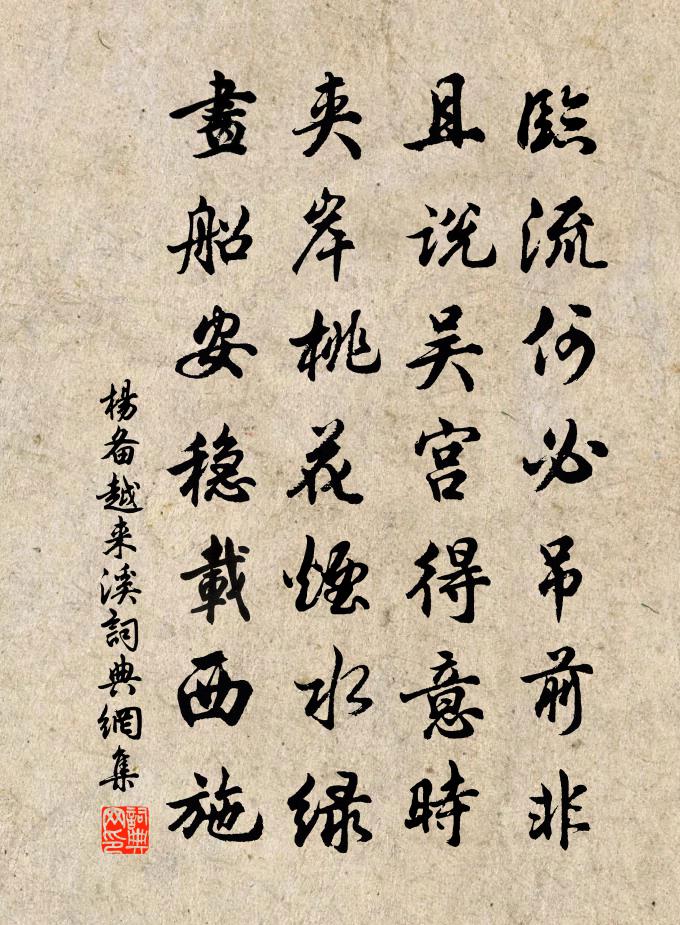 臨流何必吊前非
且說吴宫得意時
夾岸桃花煙水緑
畫船安穩載西施
楊备越来溪詞典網集
詞典
网印